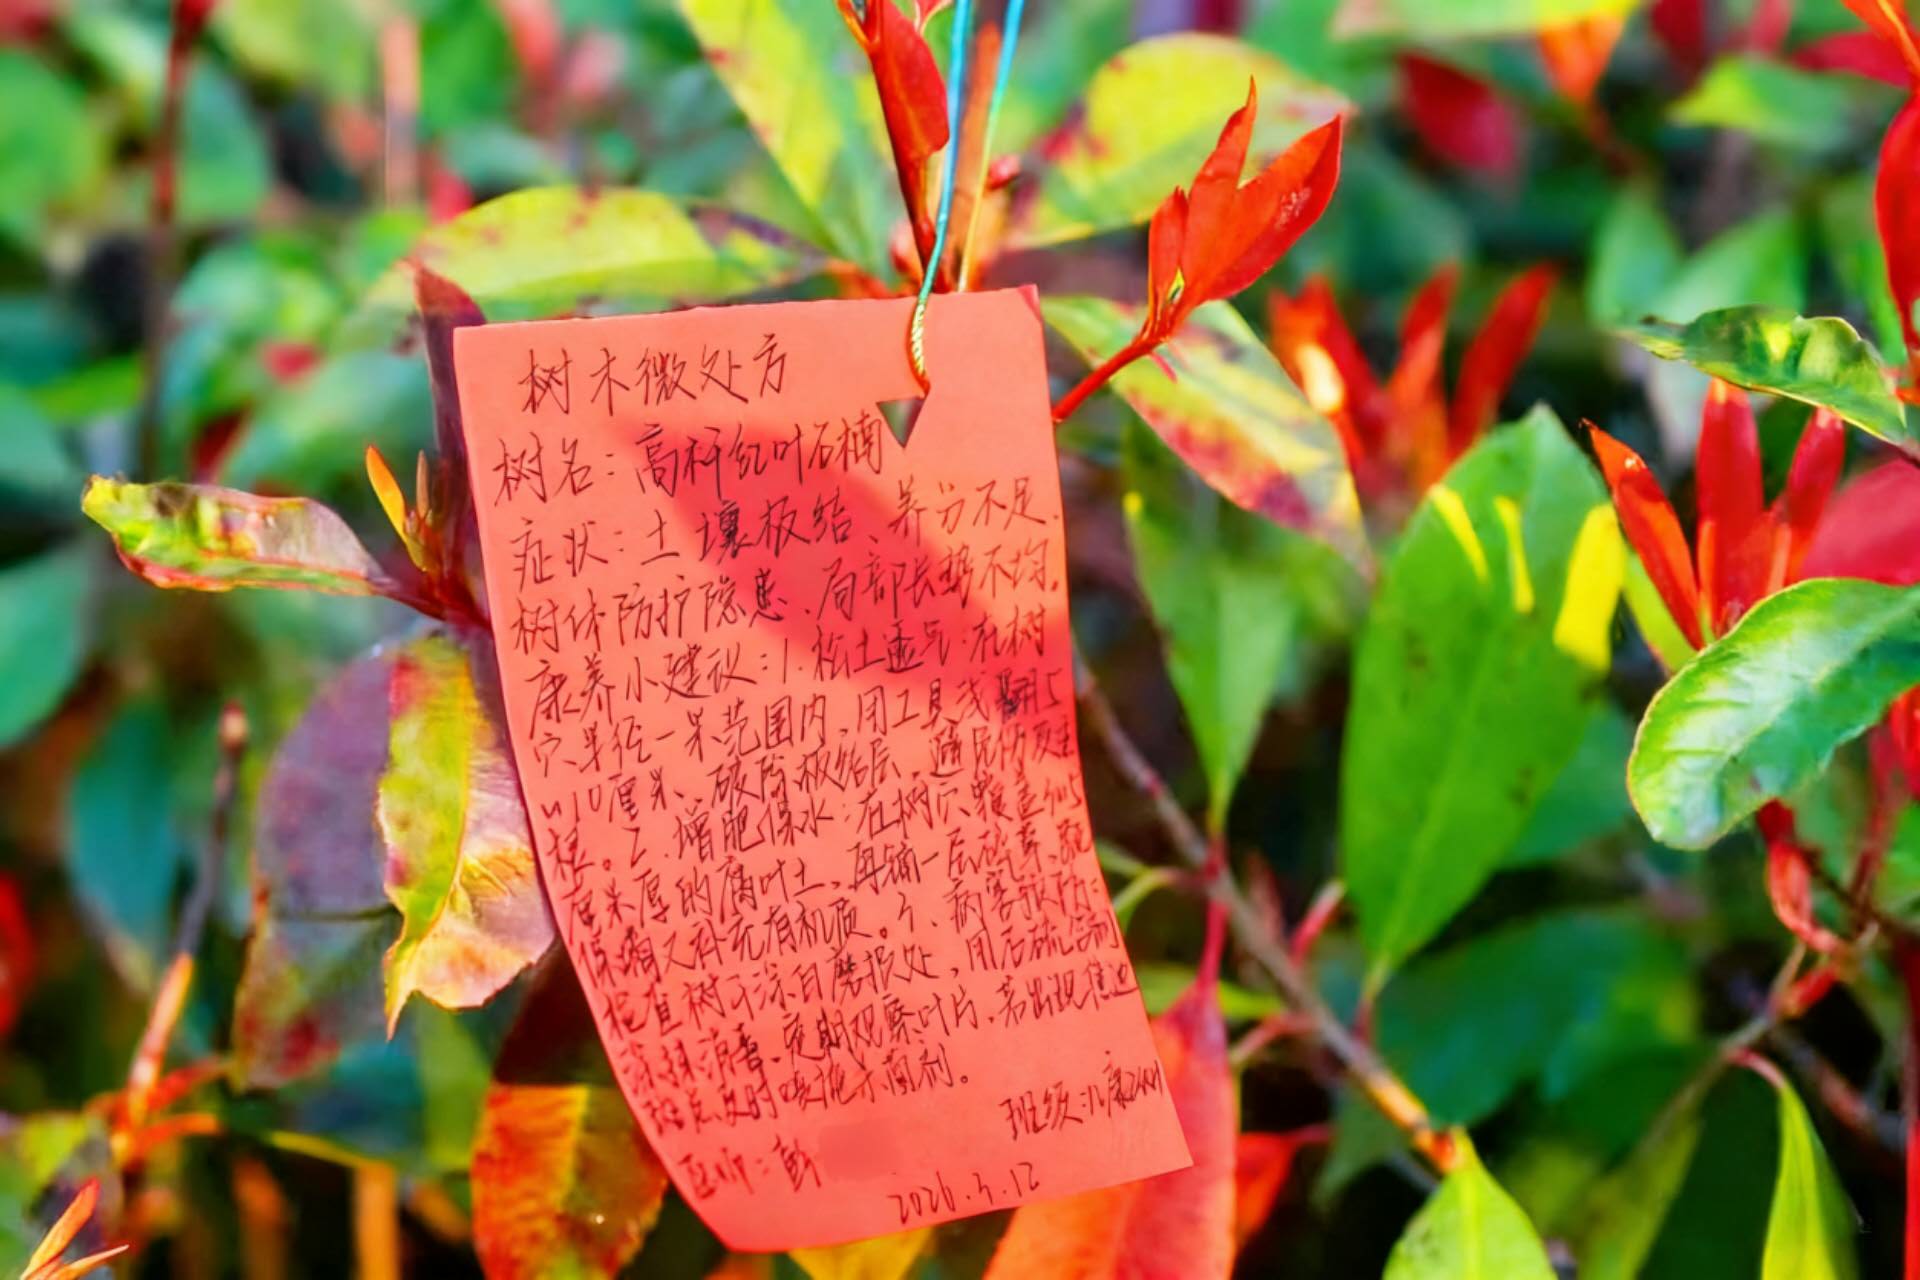 树木微处方
树名：高杆红叶石楠
症状：土壤板结、养分不足、
树体防护隐患、局部长势不均。
康养小建议：1.松土透气：在树
穴半径一米范围内，用工具浅翻5
~10厘米、破除板结层，避免伤及
根。2.增肥保水：在树穴覆盖约5
厘米厚的腐叶土，再铺一层碎草、既
保墒又补充有机质。3、病害预防：
检查树干涂白磨损处，用石硫合剂
涂抹消毒、定期观察叶片，若出现焦边
斑点及时喷施杀菌剂。
班级：
医师：彭
2026.3.12